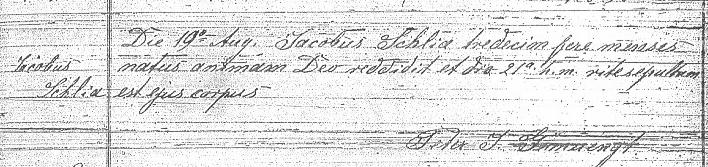 Die 19ᵒ Aug. Jacobus Schlia tredecim fere menses
Jacobus natus animam Deo reddidit et die 21ᵃ h.m. rite sepultum
Schlia est ejus corpus
Peter J.